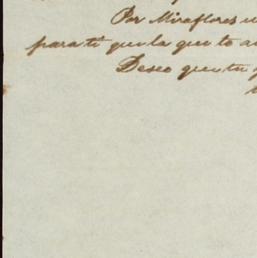 Por Miraflores
para ti que la que te
Deseo que tu